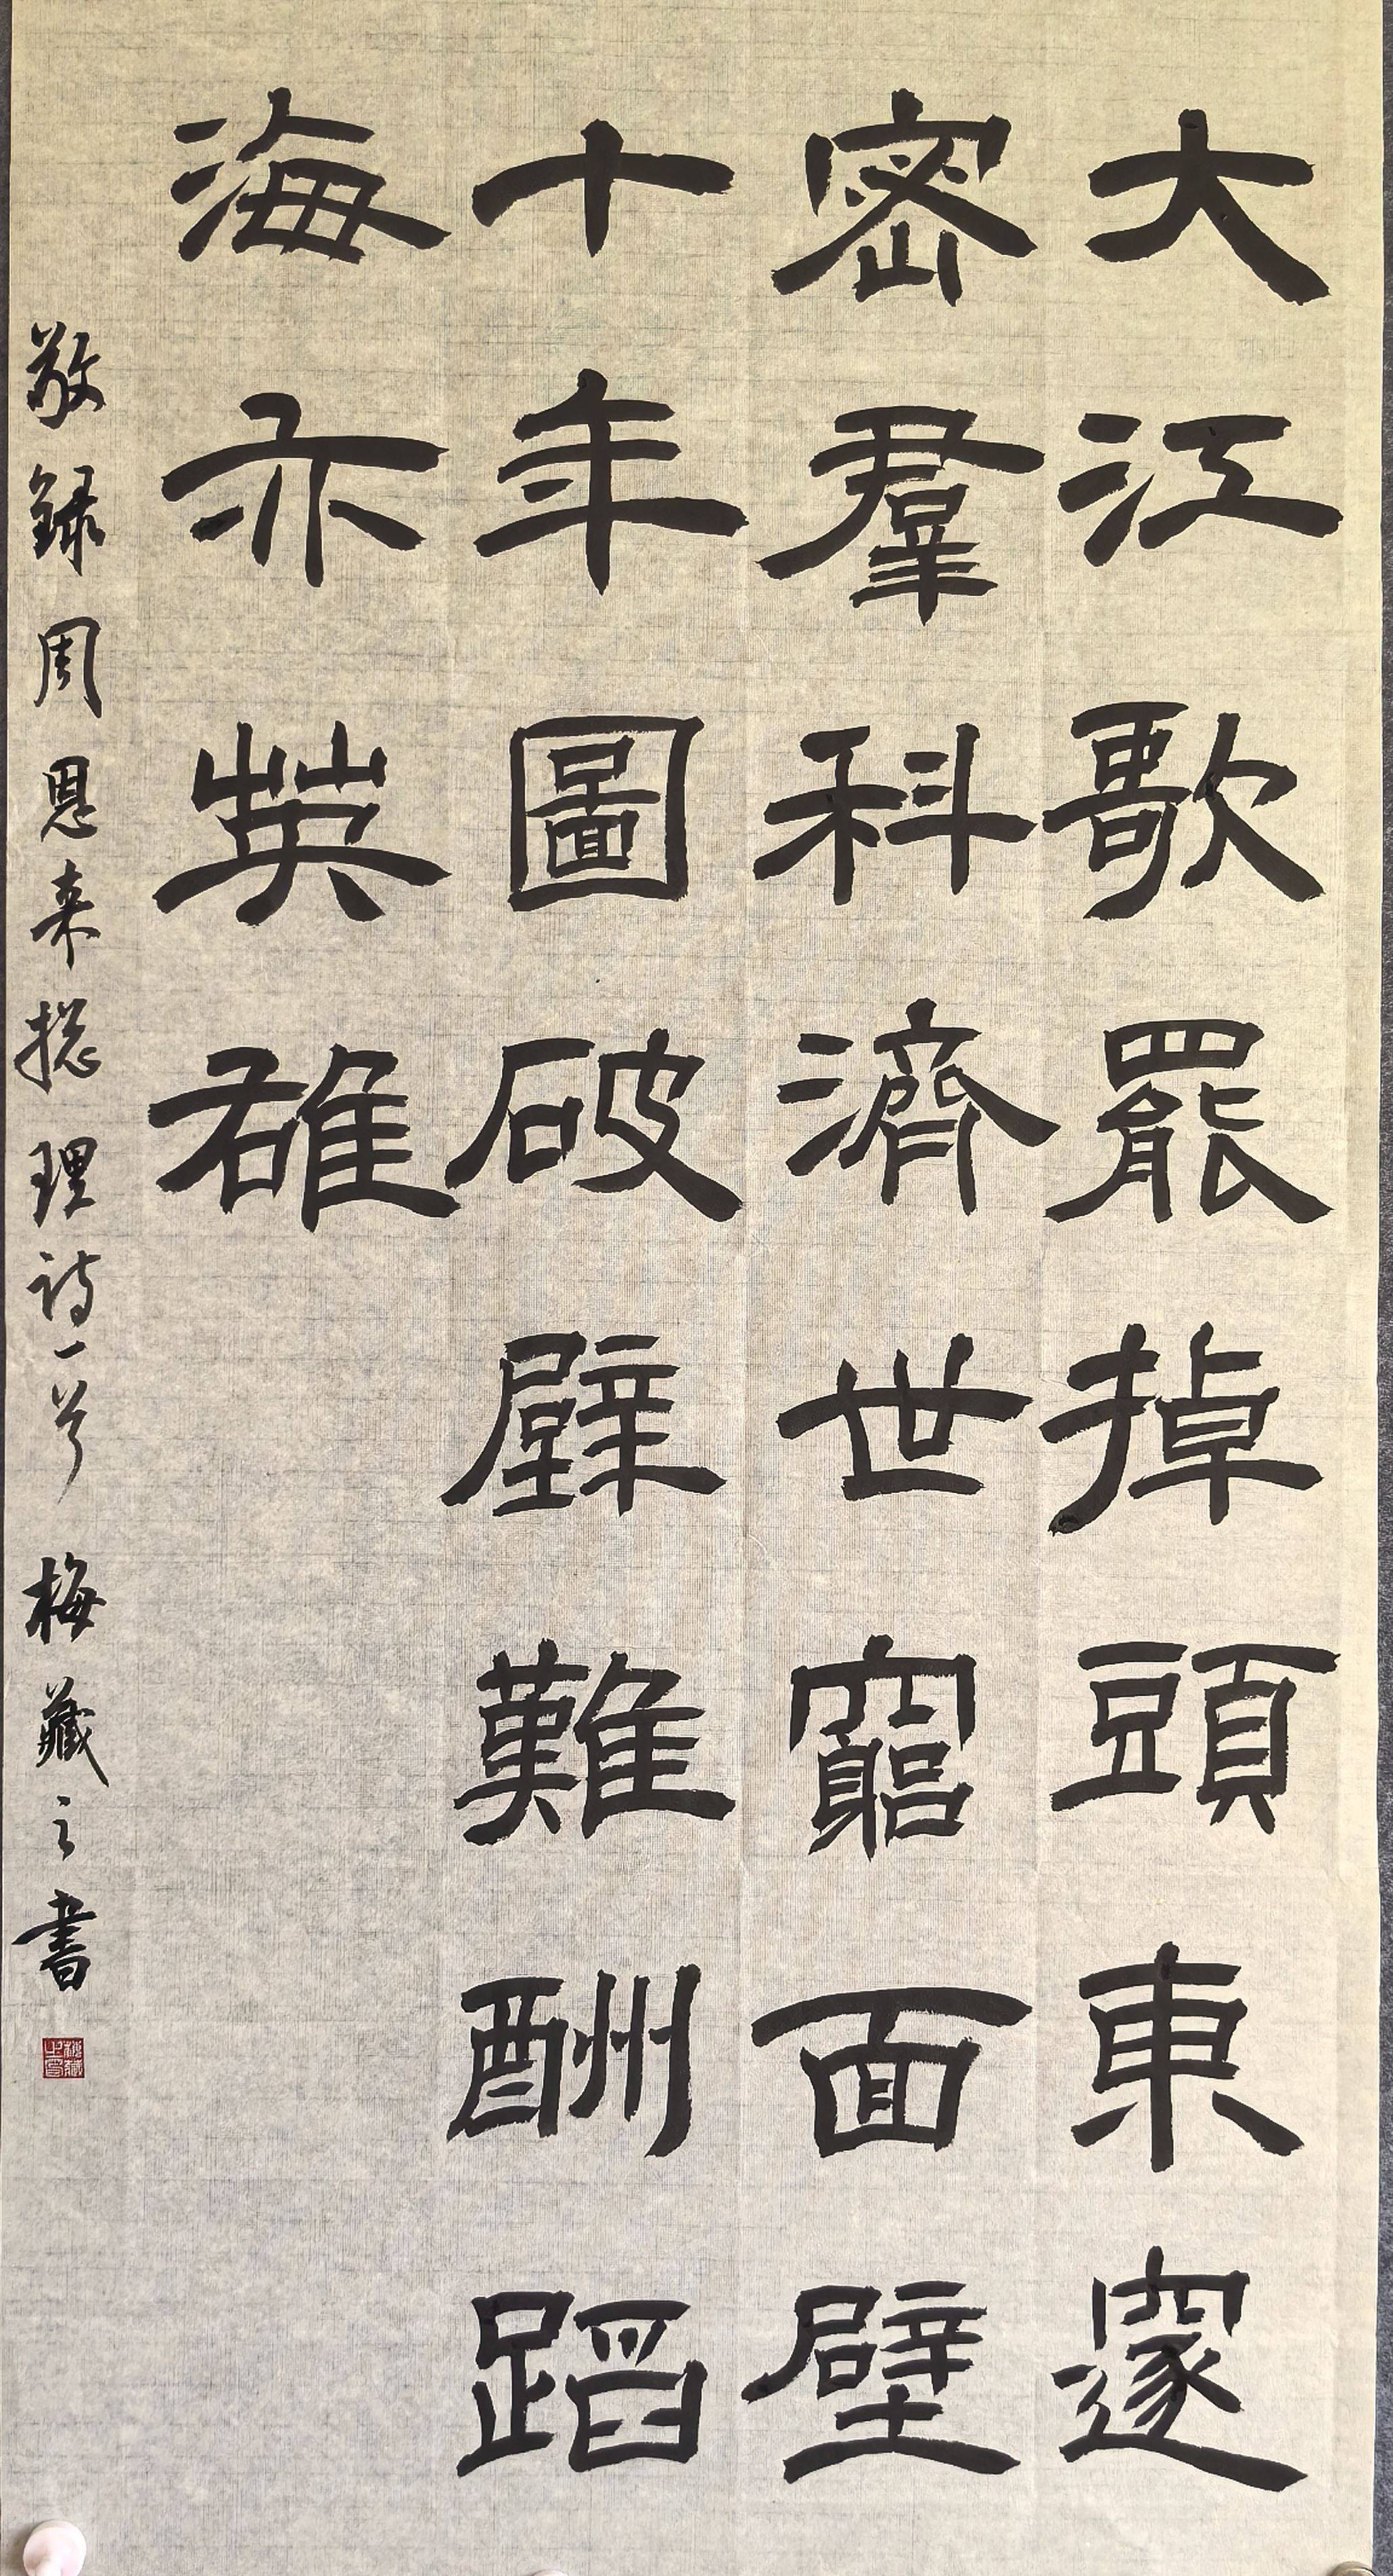 大江歌罷掉頭東邃
密羣科濟世窮面壁
十年圖破壁難酬蹈
海亦英雄
敬録周恩来摠理詩一首 梅藏之書